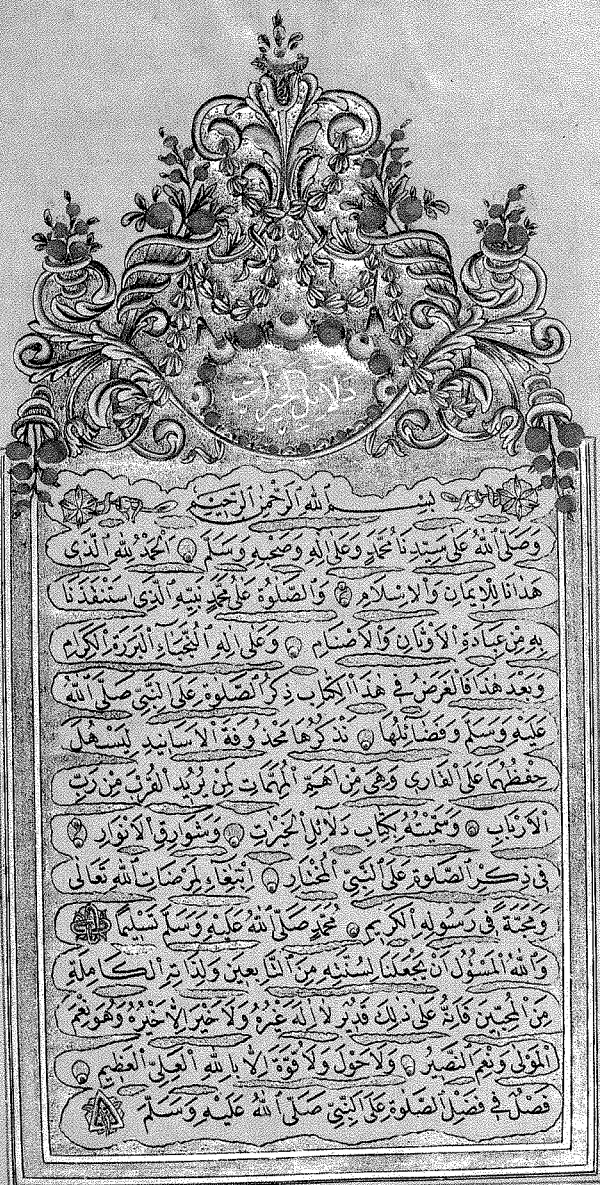 دلائل الخيرات
بِسْمِ اللهِ الرَّحْمٰنِ الرَّحِيمِ
وَصَلَّى اللهُ عَلَى سَيِّدِنَا مُحَمَّدٍ وَعَلَى اٰلِهِ وَصَحْبِهِ وَسَلَّمَ اَلْحَمْدُ لِلّٰهِ الَّذِى
هَدَانَا لِلْاِيمَانِ وَالْاِسْلَامِ وَالصَّلٰوةُ عَلَى مُحَمَّدٍ نَبِيِّهِ الَّذِى اسْتَنْقَذَنَا
بِهِ مِنْ عِبَادَةِ الْاَوْثَانِ وَالْاَصْنَامِ وَعَلَى اٰلِهِ النُّجَبَاءِ الْبَرَرَةِ الْكِرَامِ
وَبَعْدَ هٰذَا فَالْغَرَضُ فِى هٰذَا الْكِتَابِ ذِكْرُ الصَّلٰوةِ عَلَى النَّبِيِّ صَلَّى اللهُ
عَلَيْهِ وَسَلَّمَ وَفَضَائِلُهَا نَذْكُرُهَا مَحْذُوفَةَ الْاَسَانِيدِ لِيَسْهُلَ
حِفْظُهُمَا عَلَى الْقَارِى وَهِىَ مِنْ اَهَمِّ الْمُهِمَّاتِ لِمَنْ يُرِيدُ الْقُرْبَ مِنْ رَبِّ
الْاَرْبَابِ وَسَمَّيْتُهُ بِكِتَابِ دَلَائِلِ الْخَيْرَاتِ وَشَوَارِقِ الْاَنْوَارِ
فِى ذِكْرِ الصَّلٰوةِ عَلَى النَّبِيِّ الْمُخْتَارِ اِبْتِغَاءً لِمَرْضَاتِ اللهِ تَعَالَى
وَمَحَبَّةً فِى رَسُولِهِ الْكَرِيمِ مُحَمَّدٍ صَلَّى اللهُ عَلَيْهِ وَسَلَّمَ تَسْلِيمًا
وَاللهُ الْمَسْؤُلُ اَنْ يَجْعَلَنَا لِسُنَّتِهِ مِنَ التَّابِعِينَ وَلِذَاتِهِ الْكَامِلَةِ
مِنَ الْمُحِبِّينَ فَاِنَّهُ عَلَى ذٰلِكَ قَدِيرٌ لَا اِلٰهَ غَيْرُهُ وَلَا خَيْرَ اِلَّا خَيْرُهُ وَهُوَ نِعْمَ
الْمَوْلَى وَنِعْمَ النَّصِيرُ وَلَا حَوْلَ وَلَا قُوَّةَ اِلَّا بِاللهِ الْعَلِيِّ الْعَظِيمِ
فَصْلٌ فِى فَضْلِ الصَّلٰوةِ عَلَى النَّبِيِّ صَلَّى اللهُ عَلَيْهِ وَسَلَّمَ